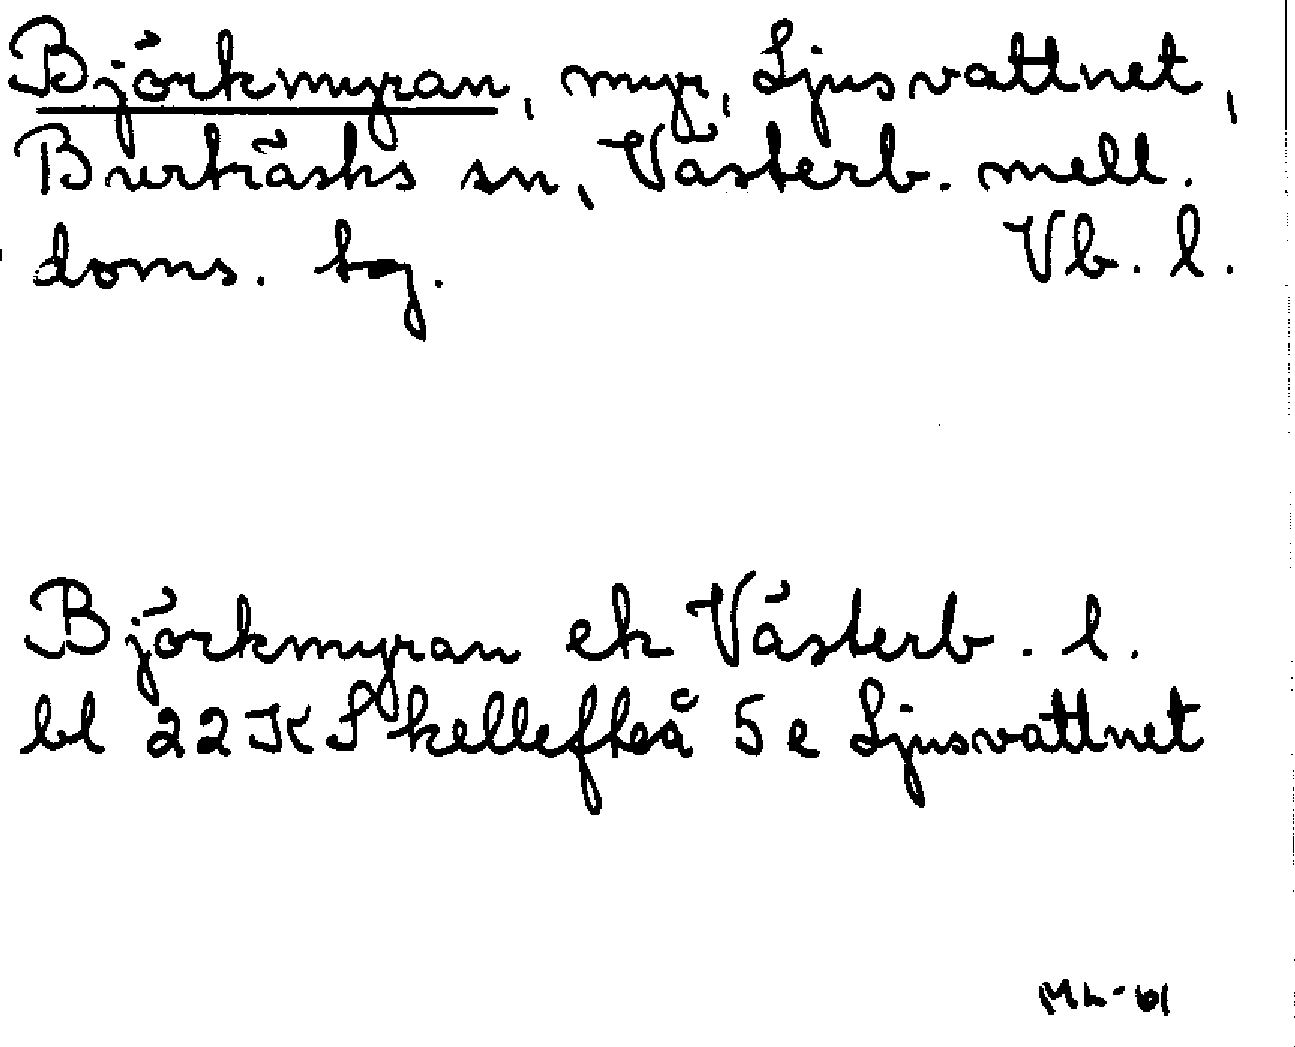 Björkmyran, myr, Ljusvattnet,
Burträsks sn, Västerb. mell.
doms. tg. Vb. l.
Björkmyran ek Västerb. l.
bl 22 K Skellefteå 5 e Ljusvattnet
ML-61